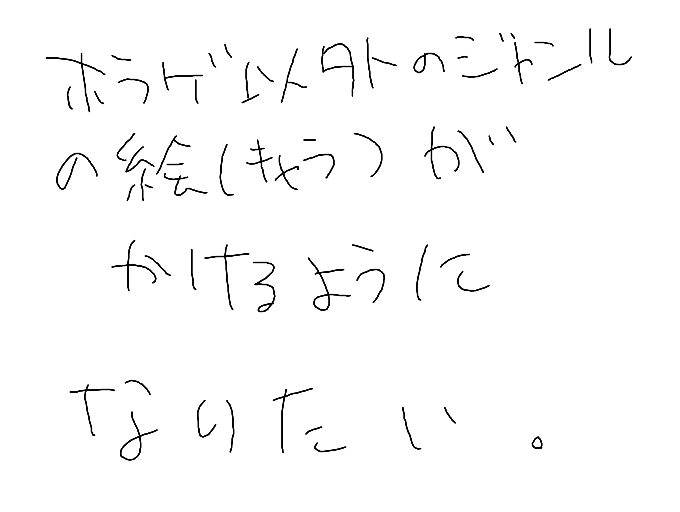 ホラゲ以外のジャンル
の絵(きょう)が
かけるように
なりたい。